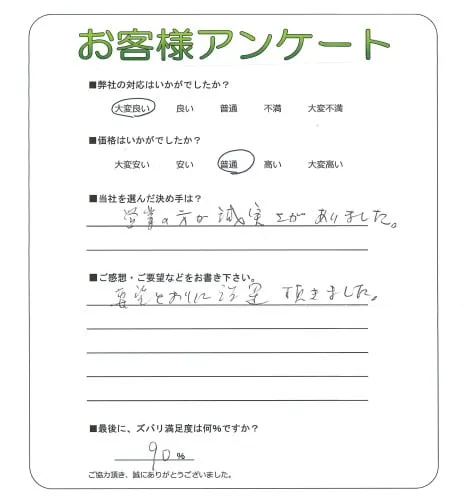 お客様アンケート
■弊社の対応はいかがでしたか?
大変良い 良い 普通 不満 大変不満
■価格はいかがでしたか?
大変安い 安い 普通 高い 大変高い
■当社を選んだ決め手は?
営業の方が誠実さがありました。
■ご感想・ご要望などをお書き下さい。
要望とおりに設置頂きました。
■最後に、ズバリ満足度は何%ですか?
90%
ご協力頂き、誠にありがとうございました。